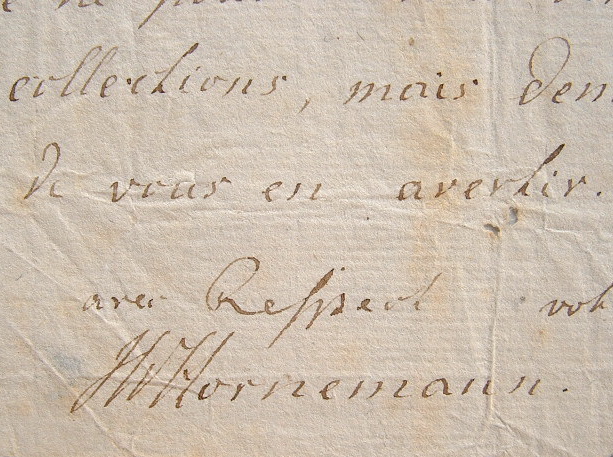 collections, mais dem
de vous en avertir.
avec Respect vot
JWHornemann.